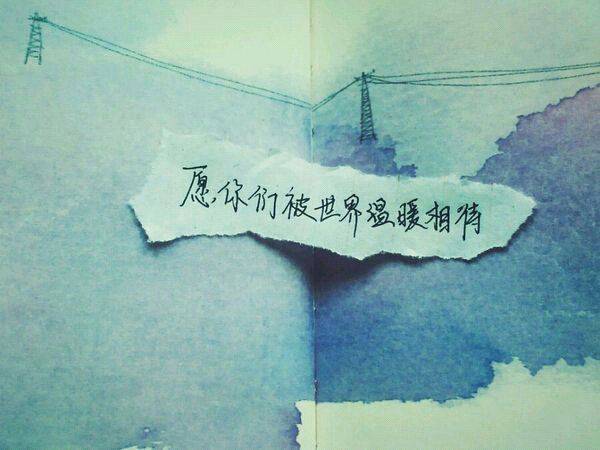 愿,你们被世界温暖相待